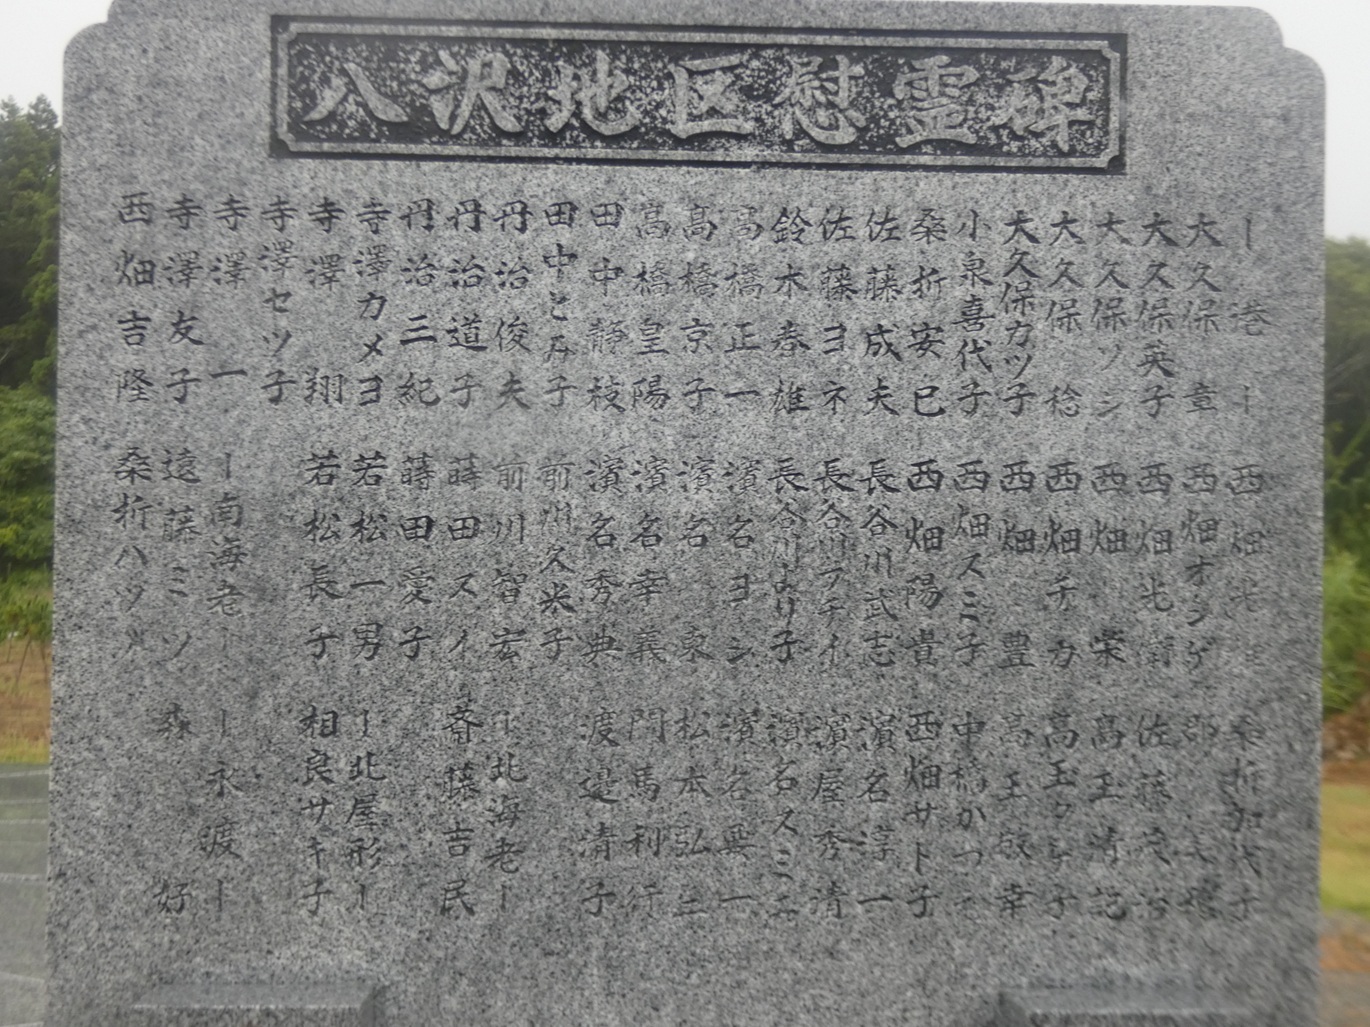 八沢地区慰霊碑
ー港ー
大久保章
大久保英子
大久保ソシ
大久保稔
大久保カツ子
小泉喜代子
桑折安巳
佐藤成夫
佐藤ヨネ
鈴木春雄
髙橋正一
髙橋京子
髙橋皇陽
田中静枝
田中とみ子
丹治俊夫
丹治道子
丹治三紀
寺澤カメヨ
寺澤翔
寺澤セツ子
寺澤一
寺澤友子
西畑吉隆
西畑
西畑オシゲ
西畑
西畑栄
西畑チカ
西畑豊
西畑スミ子
西畑陽貴
長谷川武志
長谷川アチイ
長谷川より子
濱名ヨシ
濱名
濱名幸義
濱名秀典
前川久米子
前川智宏
蒔田スイ
蒔田愛子
若松一男
若松長子
ー南海老ー
遠藤ミツ
桑折ハツメ
桑折加代子
佐藤
高玉
高玉ケ子
高玉敏幸
中橋かつ
西畑サト子
濱名淳一
濱屋秀清
濱名スミ
濱名一
松本弘
門馬利行
渡邉清子
ー北海老ー
斎藤吉民
ー北屋形ー
相良サキ子
ー永渡ー
森好